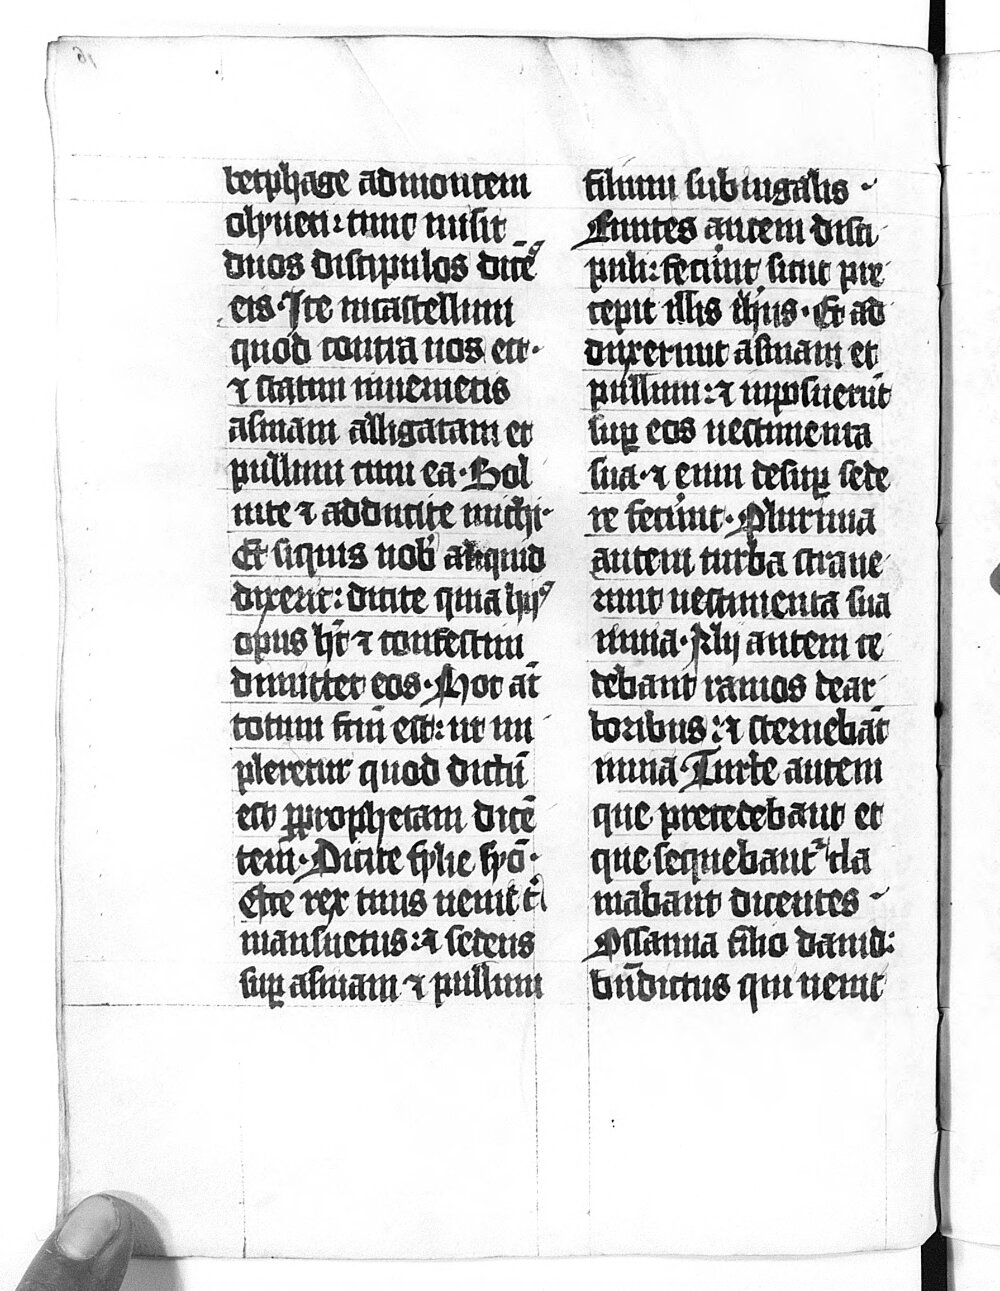 betphage ad montem
olyueti: tunc misit
duos discipulos dicēs
eis· Ite in castellum
quod contra uos est·
⁊ statim inuenietis
asinam alligatam et
pullum cum ea· Sol
uite ⁊ adducite michi·
Et siquis uob aliquid
dixerit: dicite quia hijs
opus hꝫ ⁊ confestim
dimittet eos· Hoc aūt
totum fcm̄ est: ut im
pleretur quod dictū
est ꝑ prophetam dicē
tem· Dicite fylie syō·
Ecce rex tuus uenit t
mansuetus: ⁊ sedens
suꝑ asinam ⁊ pullum
filium subiugalis
Euntes autem disci
puli: fecerūt sicut pre
cepit illis ihūs· Et ad
duxerunt asinam et
pullum: ⁊ inposuerūt
suꝑ eos uestimenta
sua· ⁊ eum desuꝑ sede
re fecerūt· Plurima
autem turba straue
runt uestimenta sua
in uia· Alij autem ce
debant ramos de ar
boribus: ⁊ sternebāt
in uia· Turbe autem
que precedebant et
que sequebantᷣ cla
mabant dicentes
Ossanna filio dauid:
bn̄dictus qui uenit